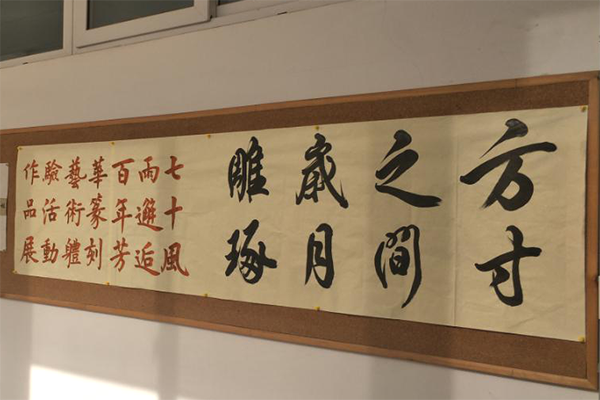 方寸
之間
歲月
雕琢
七十風
雨邂逅
百年芳
華篆刻
藝術體
驗活動
作品展